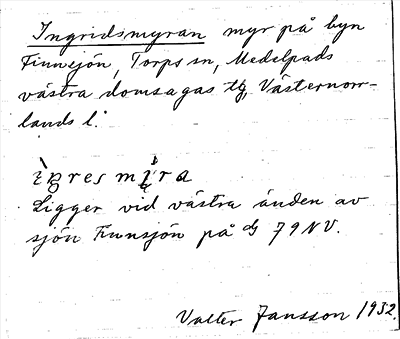 Ingridsmyran myr på byn
Finnsjön, Torps sn, Medelpads
västra domsagas tg, Västernorr-
lands l.
Ligger vid västra änden av
sjön Finnsjön på 79NV.
Valter Jansson 1932.